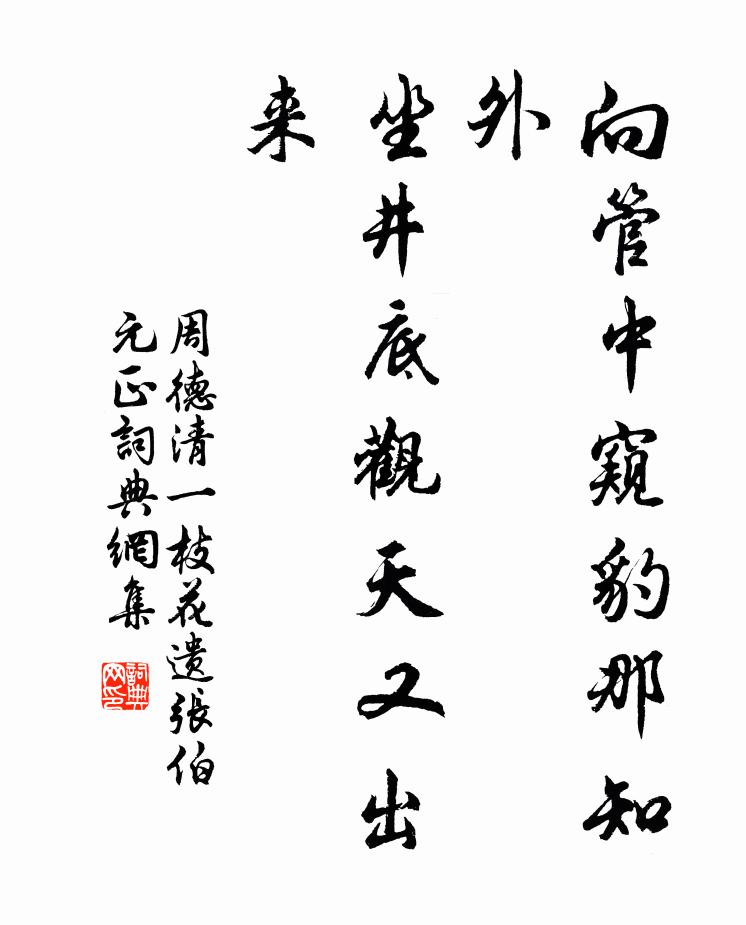 向管中窺豹那知
外
坐井底觀天又出
来
周德清一枝花遗張伯
元正詞典網集
詞典
网印